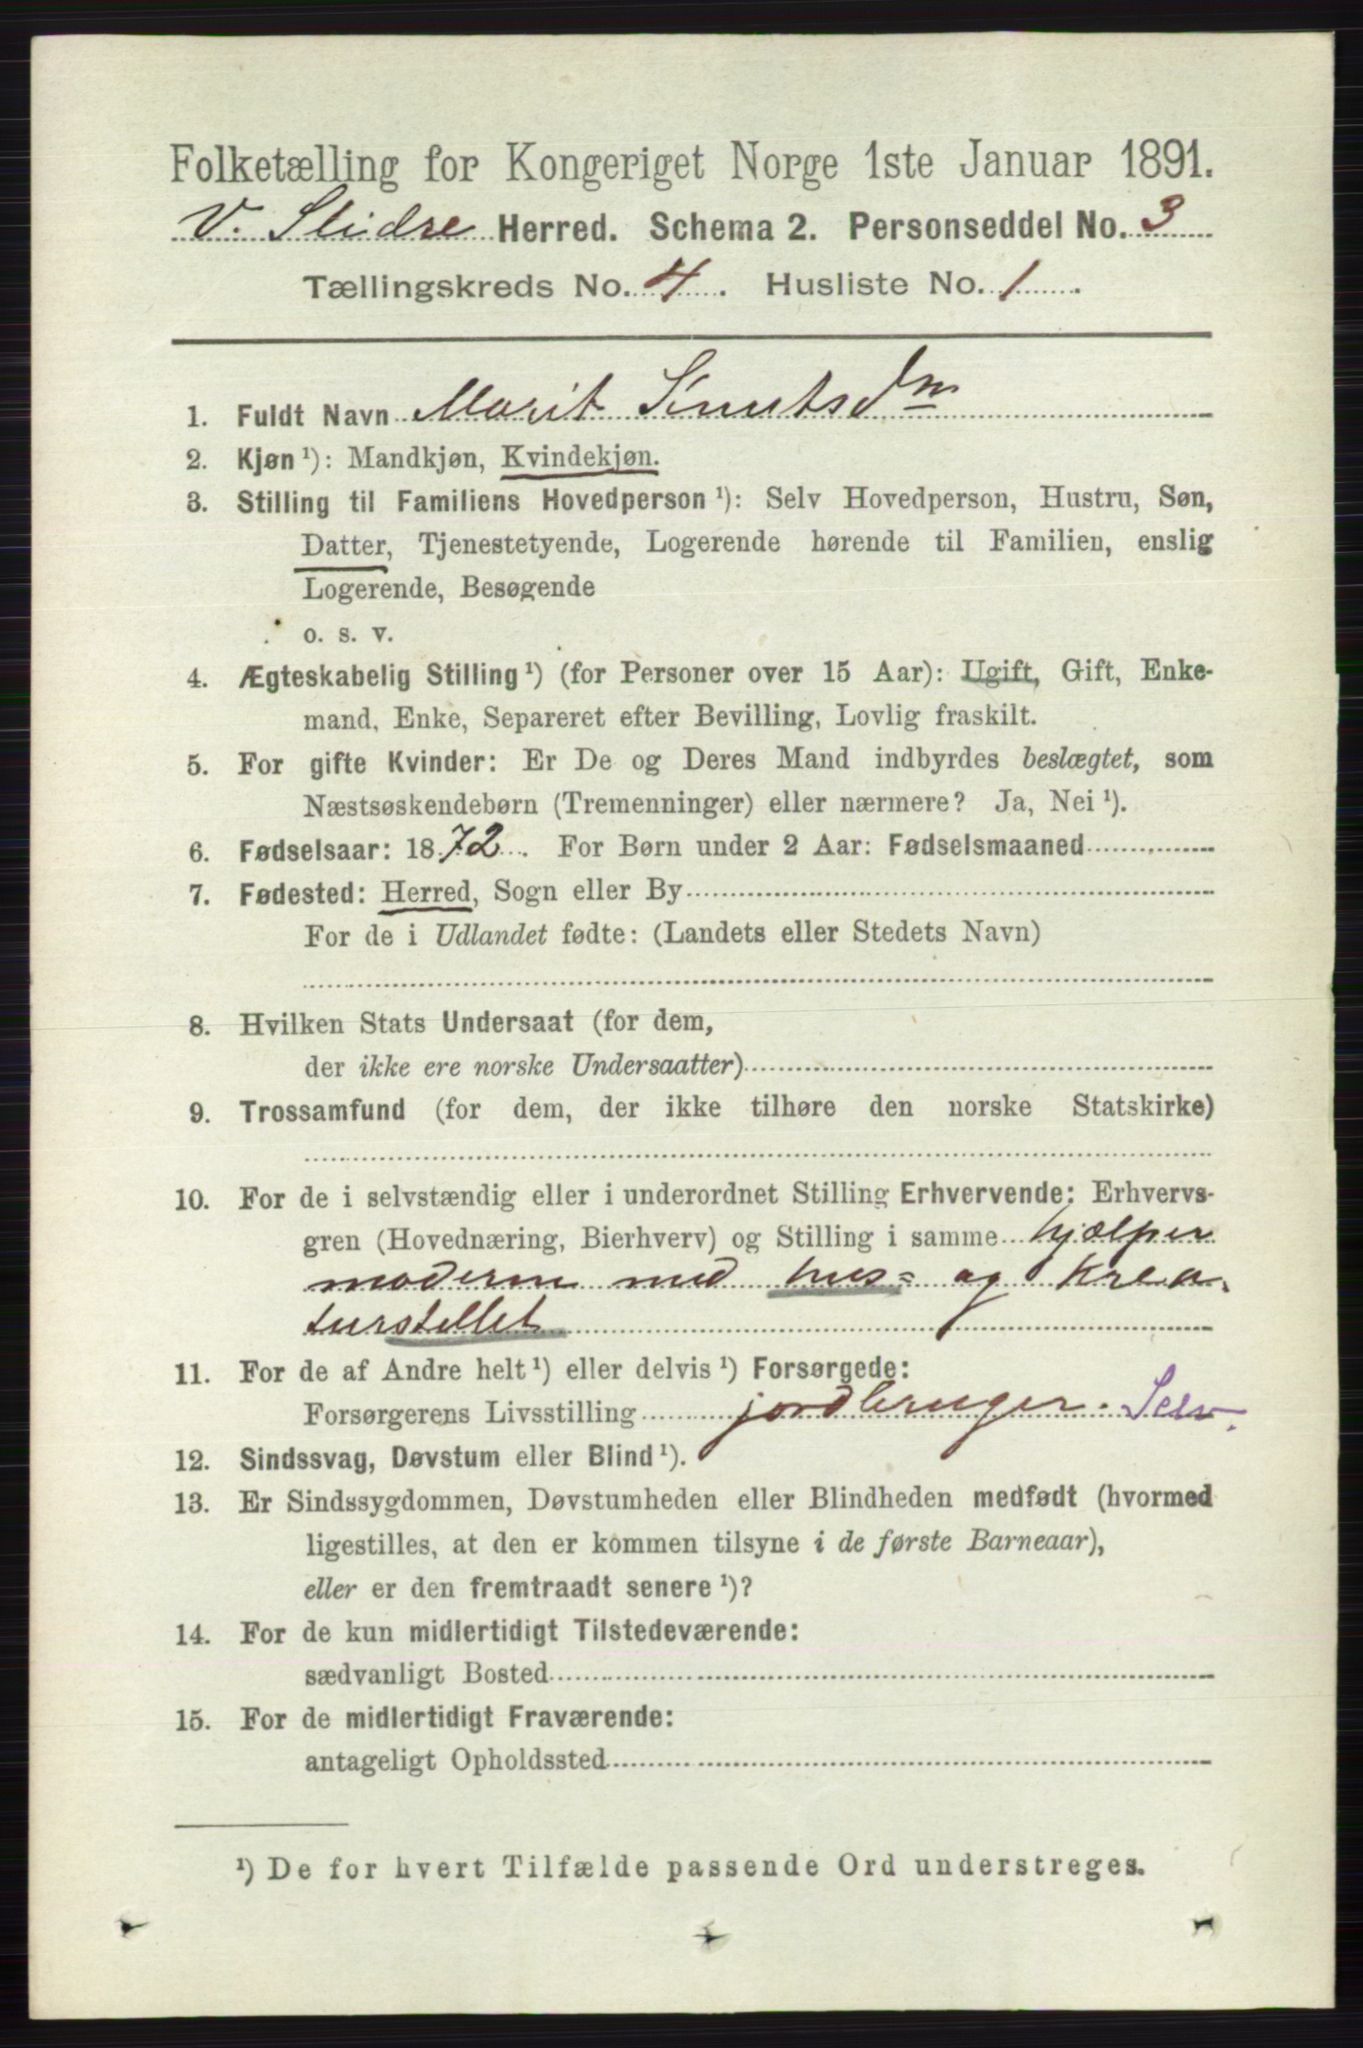 Folketælling for Kongeriget Norge 1ste Januar 1891.
V. Slidre Herred. Schema 2. Personseddel No. 3
Tællingskreds No. 4. Husliste No. 1.
1. Fuldt Navn Marit Knutsdn
2. Kjøn ¹): Mandkjøn, Kvindekjøn.
3. Stilling til Familiens Hovedperson ¹): Selv Hovedperson, Hustru, Søn,
Datter, Tjenestetyende, Logerende hørende til Familien, enslig
Logerende, Besøgende
o. s. v.
4. Ægteskabelig Stilling ¹) (for Personer over 15 Aar): Ugift, Gift, Enke-
mand, Enke, Separeret efter Bevilling, Lovlig fraskilt.
5. For gifte Kvinder: Er De og Deres Mand indbyrdes beslægtet, som
Næstsøskendebørn (Tremenninger) eller nærmere? Ja, Nei ¹).
6. Fødselsaar: 1872. For Børn under 2 Aar: Fødselsmaaned
7. Fødested: Herred, Sogn eller By
For de i Udlandet fødte: (Landets eller Stedets Navn)
8. Hvilken Stats Undersaat (for dem,
der ikke ere norske Undersaatter)
9. Trossamfund (for dem, der ikke tilhøre den norske Statskirke)
10. For de i selvstændig eller i underordnet Stilling Erhvervende: Erhvervs-
gren (Hovednæring, Bierhverv) og Stilling i samme hjælper
moderen med hus= og krea-
turstellet
11. For de af Andre helt ¹) eller delvis ¹) Forsørgede:
Forsørgerens Livsstilling jordbruger. Selv.
12. Sindssvag, Døvstum eller Blind ¹).
13. Er Sindssygdommen, Døvstumheden eller Blindheden medfødt (hvormed
ligestilles, at den er kommen tilsyne i de første Barneaar),
eller er den fremtraadt senere ¹)?
14. For de kun midlertidigt Tilstedeværende:
sædvanligt Bosted
15. For de midlertidigt Fraværende:
antageligt Opholdssted
¹) De for hvert Tilfælde passende Ord understreges.